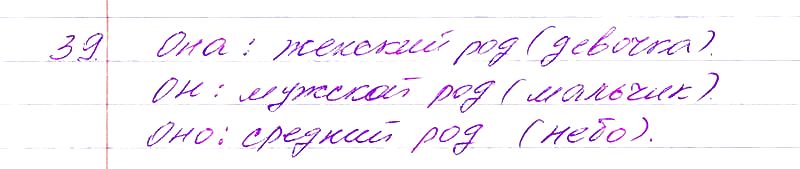 39. Она: женский род (девочка).
Он: мужской род (мальчик).
Оно: средний род (небо).